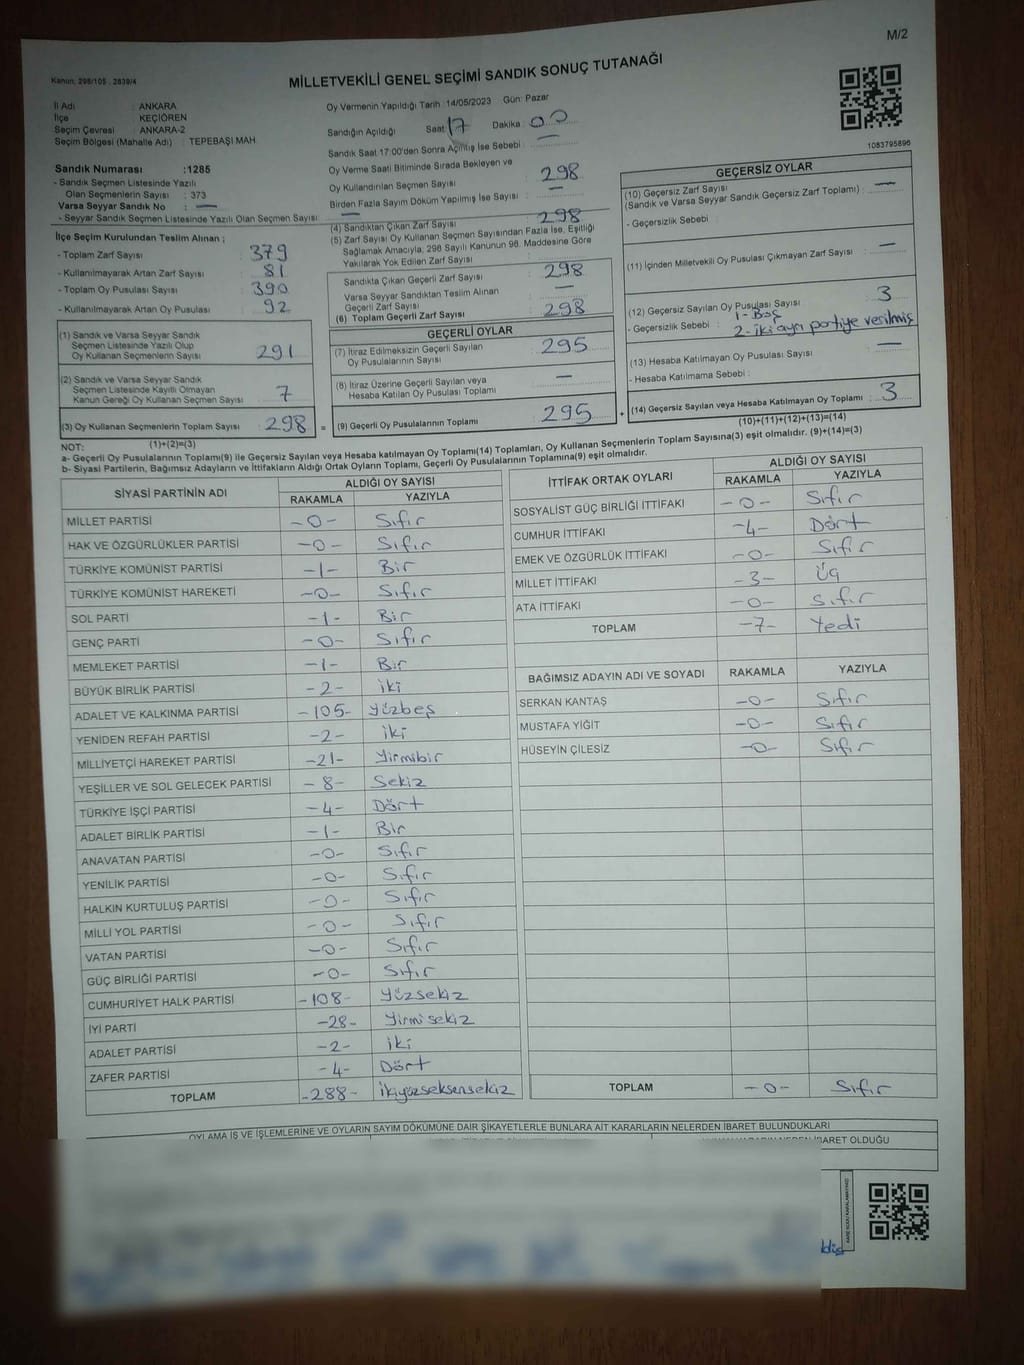 M/2
Kanun, 298/105 , 2839/4
MİLLETVEKİLİ GENEL SEÇİMİ SANDIK SONUÇ TUTANAĞI
İl Adı : ANKARA
İlçe : KEÇİÖREN
Seçim Çevresi : ANKARA-2
Seçim Bölgesi (Mahalle Adı) : TEPEBAŞI MAH
Sandık Numarası :1285
- Sandık Seçmen Listesinde Yazılı
Olan Seçmenlerin Sayısı : 373
Varsa Seyyar Sandık No : —
- Seyyar Sandık Seçmen Listesinde Yazılı Olan Seçmen Sayısı : —
Oy Vermenin Yapıldığı Tarih :14/05/2023 Gün: Pazar
Sandığın Açıldığı Saat 17 Dakika : 00
Sandık Saat 17:00'den Sonra Açılmış İse Sebebi : —
Oy Verme Saati Bitiminde Sırada Bekleyen ve
Oy Kullandırılan Seçmen Sayısı : 298
Birden Fazla Sayım Döküm Yapılmış İse Sayısı : —
1083795896
İlçe Seçim Kurulundan Teslim Alınan ;
- Toplam Zarf Sayısı : 379
- Kullanılmayarak Artan Zarf Sayısı : 81
- Toplam Oy Pusulası Sayısı : 390
- Kullanılmayarak Artan Oy Pusulası : 92
(1) Sandık ve Varsa Seyyar Sandık
Seçmen Listesinde Yazılı Olup
Oy Kullanan Seçmenlerin Sayısı : 291
(2) Sandık ve Varsa Seyyar Sandık
Seçmen Listesinde Kayıtlı Olmayan
Kanun Gereği Oy Kullanan Seçmen Sayısı : 7
(3) Oy Kullanan Seçmenlerin Toplam Sayısı : 298
(1)+(2)=(3)
(4) Sandıktan Çıkan Zarf Sayısı : 298
(5) Zarf Sayısı Oy Kullanan Seçmen Sayısından Fazla İse, Eşitliği
Sağlamak Amacıyla, 298 Sayılı Kanunun 98. Maddesine Göre
Yakılarak Yok Edilen Zarf Sayısı : —
Sandıkta Çıkan Geçerli Zarf Sayısı : 298
Varsa Seyyar Sandıktan Teslim Alınan
Geçerli Zarf Sayısı : —
(6) Toplam Geçerli Zarf Sayısı : 298
GEÇERLİ OYLAR
(7) İtiraz Edilmeksizin Geçerli Sayılan
Oy Pusulalarının Sayısı : 295
(8) İtiraz Üzerine Geçerli Sayılan veya
Hesaba Katılan Oy Pusulası Toplamı : —
= (9) Geçerli Oy Pusulalarının Toplamı : 295
GEÇERSİZ OYLAR
(10) Geçersiz Zarf Sayısı : —
(Sandık ve Varsa Seyyar Sandık Geçersiz Zarf Toplamı)
- Geçersizlik Sebebi :
(11) İçinden Milletvekili Oy Pusulası Çıkmayan Zarf Sayısı : —
(12) Geçersiz Sayılan Oy Pusulası Sayısı : 3
- Geçersizlik Sebebi : 1- Boş
2- iki ayrı partiye verilmiş
(13) Hesaba Katılmayan Oy Pusulası Sayısı : —
- Hesaba Katılmama Sebebi :
+ (14) Geçersiz Sayılan veya Hesaba Katılmayan Oy Toplamı : 3
(10)+(11)+(12)+(13)=(14)
NOT:
a- Geçerli Oy Pusulalarının Toplamı(9) ile Geçersiz Sayılan veya Hesaba katılmayan Oy Toplamı(14) Toplamları, Oy Kullanan Seçmenlerin Toplam Sayısına(3) eşit olmalıdır. (9)+(14)=(3)
b- Siyasi Partilerin, Bağımsız Adayların ve İttifakların Aldığı Ortak Oyların Toplamı, Geçerli Oy Pusulalarının Toplamına(9) eşit olmalıdır.
SİYASİ PARTİNİN ADI ALDIĞI OY SAYISI
RAKAMLA YAZIYLA
MİLLET PARTİSİ -0- Sıfır
HAK VE ÖZGÜRLÜKLER PARTİSİ -0- Sıfır
TÜRKİYE KOMÜNİST PARTİSİ -1- Bir
TÜRKİYE KOMÜNİST HAREKETİ -0- Sıfır
SOL PARTİ -1- Bir
GENÇ PARTİ -0- Sıfır
MEMLEKET PARTİSİ -1- Bir
BÜYÜK BİRLİK PARTİSİ -2- iki
ADALET VE KALKINMA PARTİSİ -105- Yüzbeş
YENİDEN REFAH PARTİSİ -2- iki
MİLLİYETÇİ HAREKET PARTİSİ -21- Yirmibir
YEŞİLLER VE SOL GELECEK PARTİSİ -8- Sekiz
TÜRKİYE İŞÇİ PARTİSİ -4- Dört
ADALET BİRLİK PARTİSİ -1- Bir
ANAVATAN PARTİSİ -0- Sıfır
YENİLİK PARTİSİ -0- Sıfır
HALKIN KURTULUŞ PARTİSİ -0- Sıfır
MİLLİ YOL PARTİSİ -0- Sıfır
VATAN PARTİSİ -0- Sıfır
GÜÇ BİRLİĞİ PARTİSİ -0- Sıfır
CUMHURİYET HALK PARTİSİ -108- Yüzsekiz
İYİ PARTİ -28- Yirmisekiz
ADALET PARTİSİ -2- iki
ZAFER PARTİSİ -4- Dört
TOPLAM -288- ikiyüzseksensekiz
İTTİFAK ORTAK OYLARI ALDIĞI OY SAYISI
RAKAMLA YAZIYLA
SOSYALİST GÜÇ BİRLİĞİ İTTİFAKI -0- Sıfır
CUMHUR İTTİFAKI -4- Dört
EMEK VE ÖZGÜRLÜK İTTİFAKI -0- Sıfır
MİLLET İTTİFAKI -3- Üç
ATA İTTİFAKI -0- Sıfır
TOPLAM -7- Yedi
BAĞIMSIZ ADAYIN ADI VE SOYADI RAKAMLA YAZIYLA
SERKAN KANTAŞ -0- Sıfır
MUSTAFA YİĞİT -0- Sıfır
HÜSEYİN ÇİLESİZ -0- Sıfır
TOPLAM -0- Sıfır
OYLAMA İŞ VE İŞLEMLERİNE VE OYLARIN SAYIM DÖKÜMÜNE DAİR ŞİKAYETLERLE BUNLARA AİT KARARLARIN NELERDEN İBARET BULUNDUKLARI
İBARET OLDUĞU